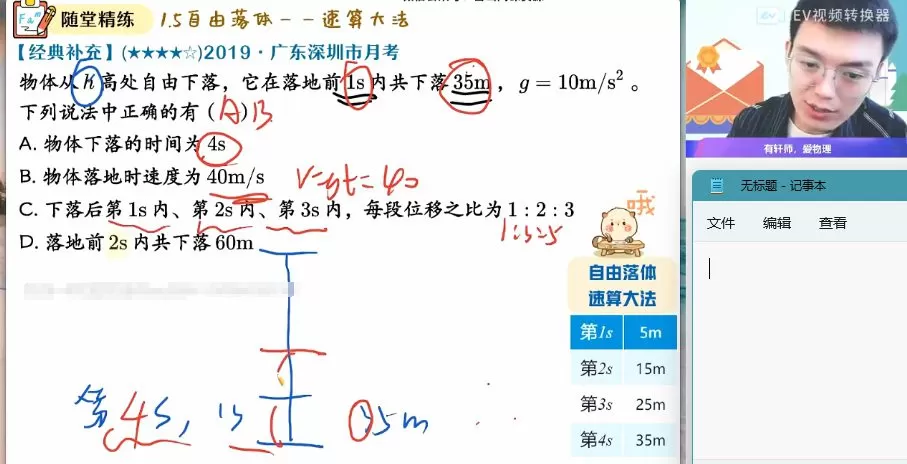 随堂精练 1.5自由落体--速算大法
EV视频转换器
【经典补充】(★★★★☆)2019·广东深圳市月考
物体从 h 高处自由下落，它在落地前 1s 内共下落 35m，g = 10m/s²。
下列说法中正确的有（AB）
A. 物体下落的时间为 4s
B. 物体落地时速度为 40m/s V=gt=40
C. 下落后第 1s 内、第 2s 内、第 3s 内，每段位移之比为 1：2：3
1:3:5
D. 落地前 2s 内共下落 60m
第4s, 1s 35m
哦
自由落体
速算大法
第1s 5m
第2s 15m
第3s 25m
第4s 35m
有轩师，爱物理
无标题 - 记事本
文件 编辑 查看